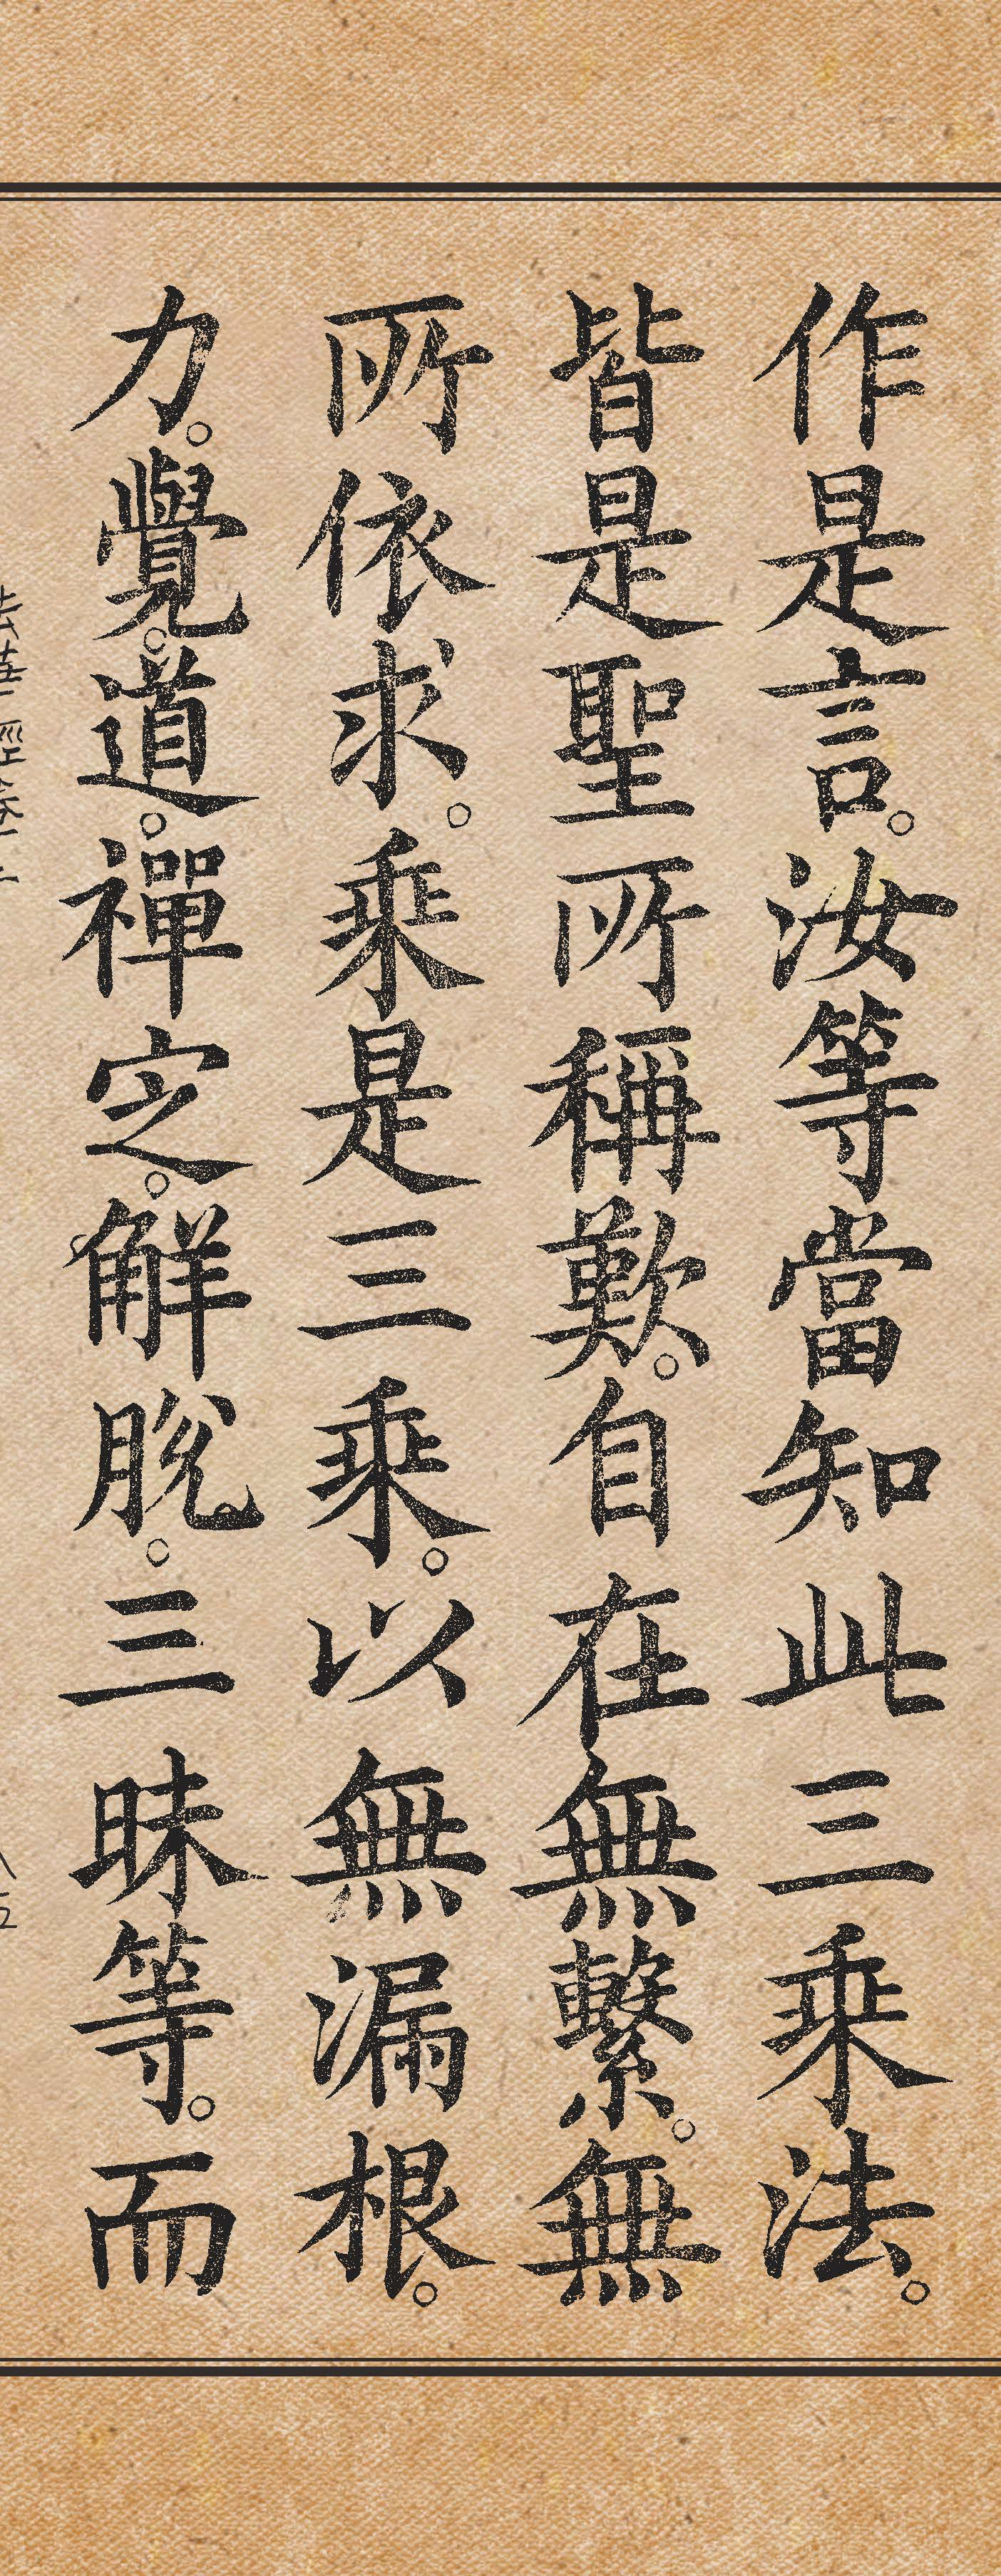 作是言。汝等當知此三乘法。
皆是聖所稱歎。自在無繫。無
所依求。乘是三乘。以無漏根。
力。覺。道。禪定。解脫。三昧等。而
法華經卷二